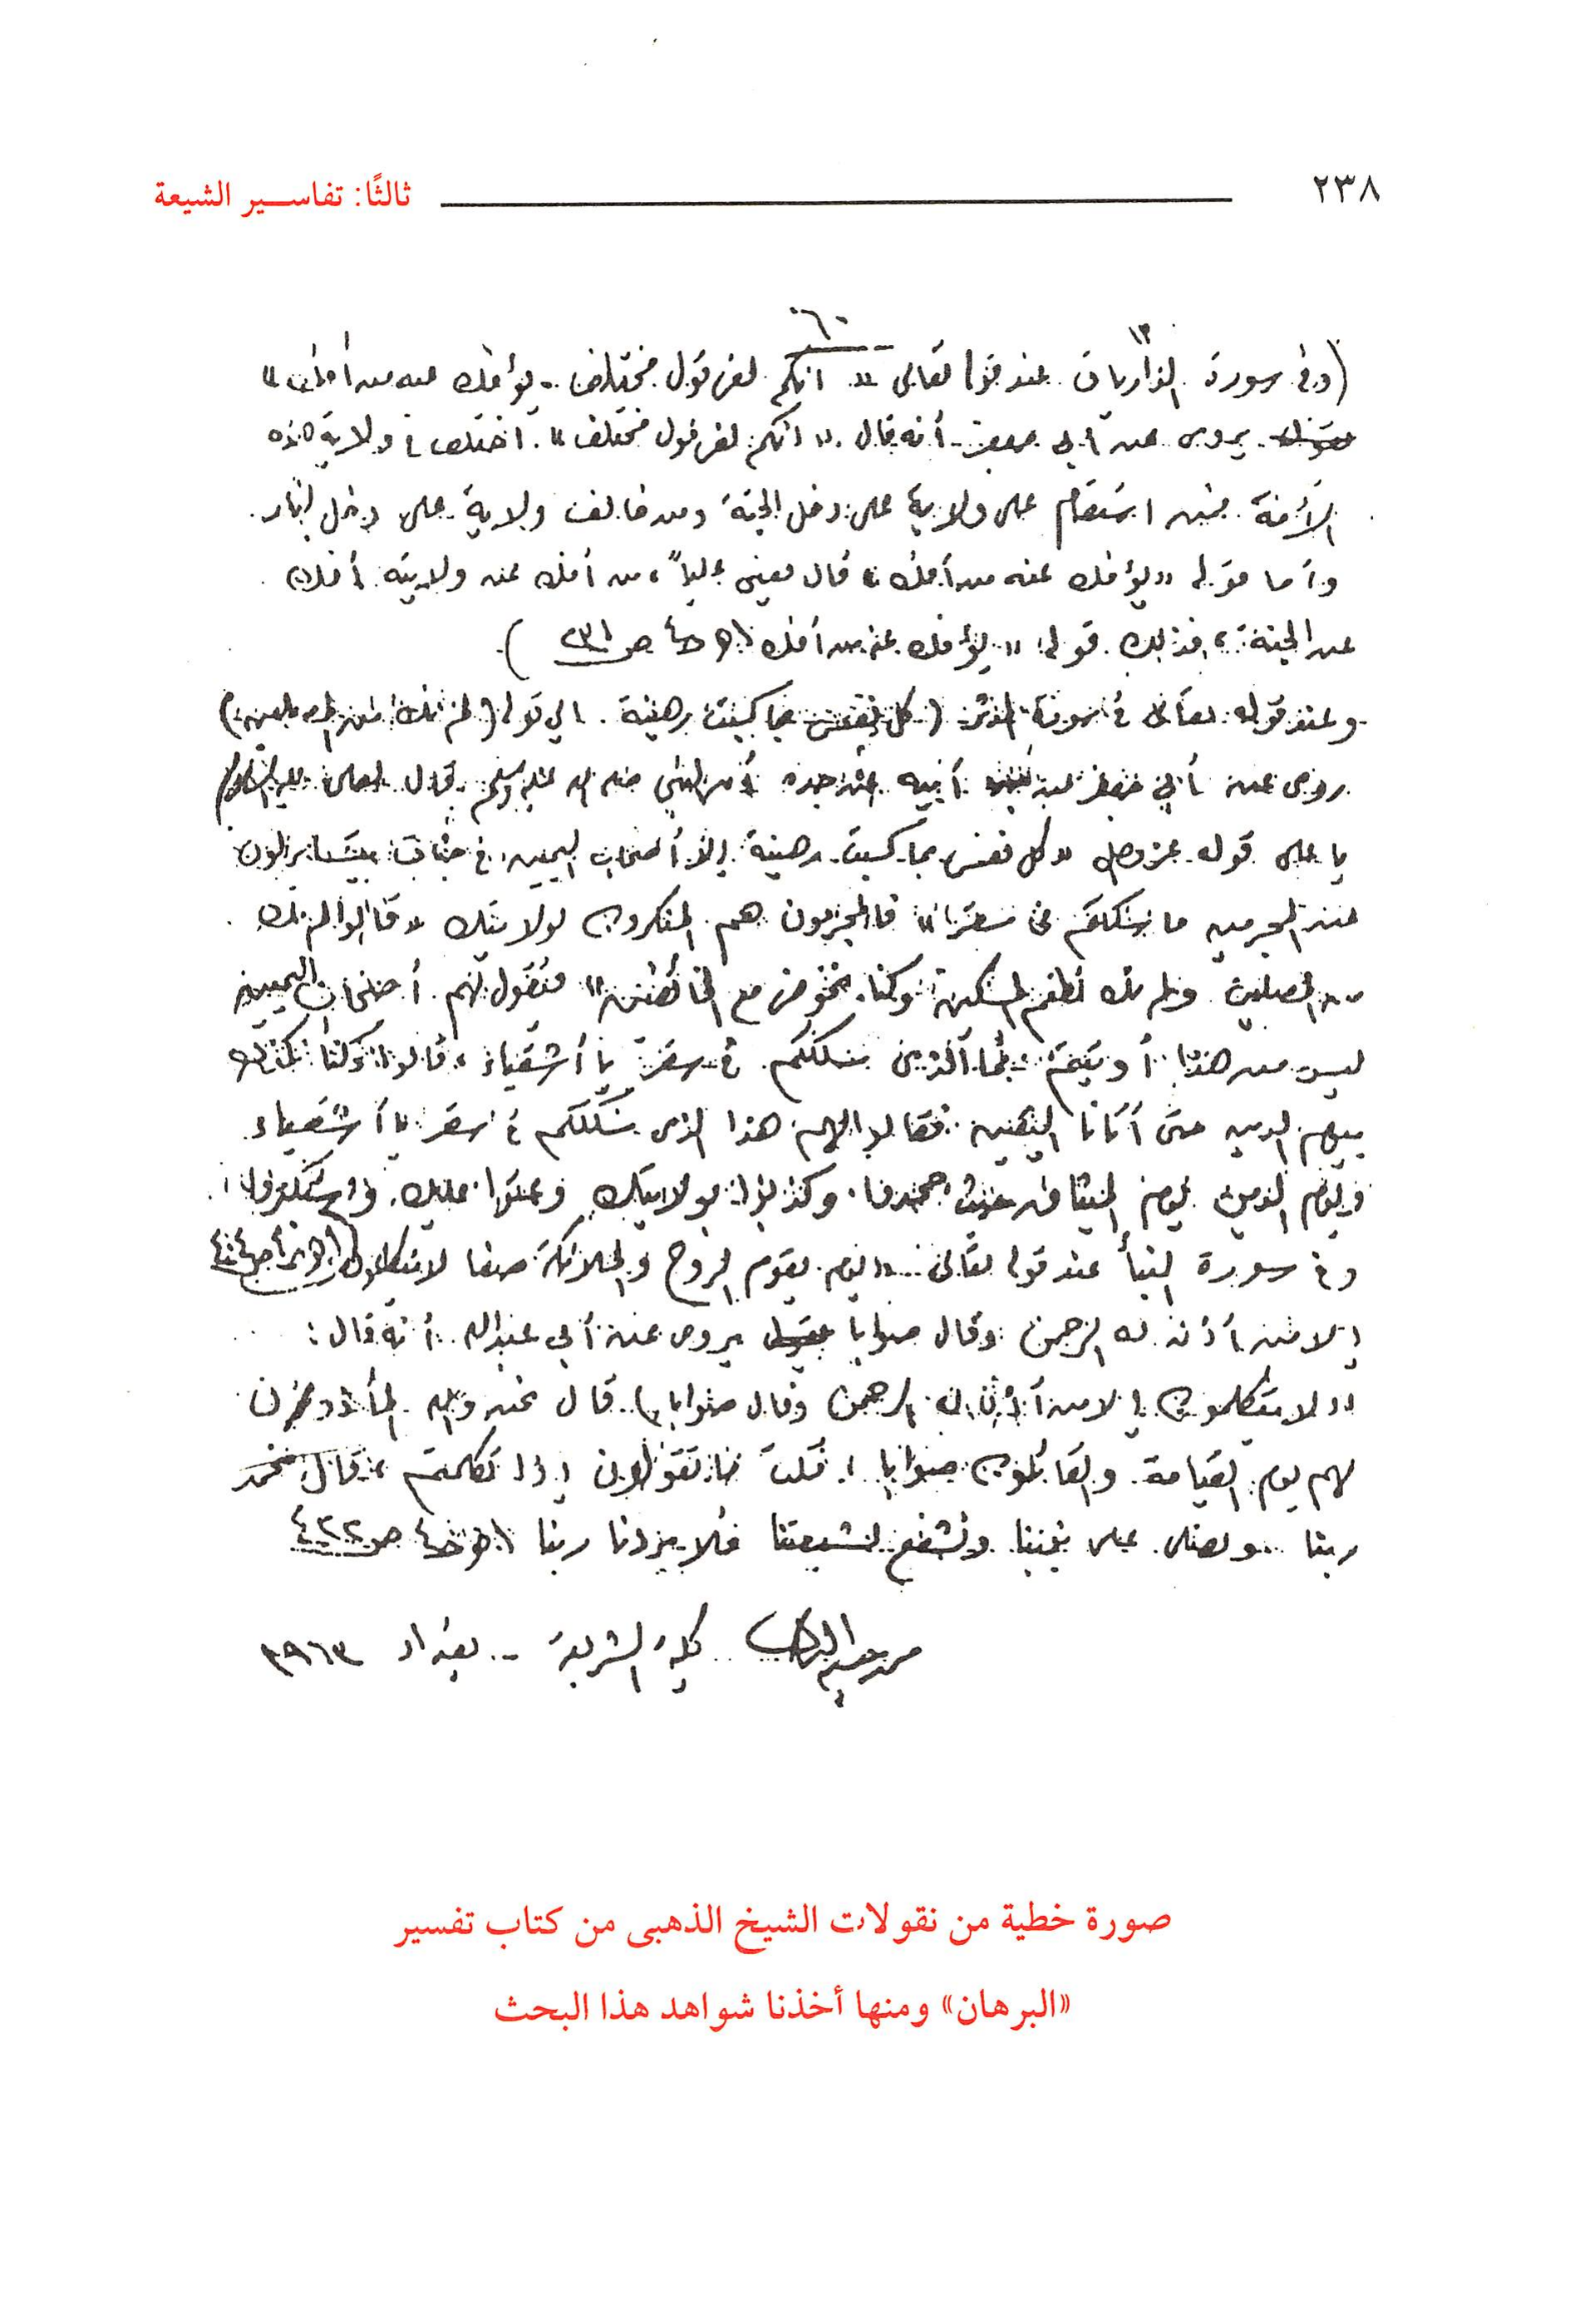 ٢٣٨
ثالثًا: تفاسير الشيعة
٦٠
(وفى سورة الذاريات عند قوله تعالى « انكم لفى قول مختلف . يؤفك عنه من أفك »
يروى عن أبى جعفر أنه قال « انكم لفى قول مختلف » . اختلف فى ولاية هذه
الأمة فمن استقام على ولاية على دخل الجنة ومن خالف ولاية على دخل النار .
وأما قوله « يؤفك عنه من أفك » قال يعنى عليا ، من أفك عن ولايته أفك
عن الجنة ، فذلك قوله « يؤفك عنه من أفك اهـ حـ٤ ص ٢٣١ ) .
وعند قوله تعالى فى سورة المدثر ( كل نفس بما كسبت رهينة . الى قوله ( لم نك من المصلين )
روى عن أبى جعفر عن أبيه عن جده أن النبى صلى الله عليه وسلم قال لعلى عليه السلام
يا على قوله عز وجل « كل نفس بما كسبت رهينة إلا أصحاب اليمين فى جنات يتساءلون
عن المجرمين ما سلككم فى سقر » فالمجرمون هم المنكرون لولايتك « قالوا لم نك
من المصلين ولم نك نطعم المسكين وكنا نخوض مع الخائضين » فيقول لهم أصحاب اليمين
ليس من هذا أوتيتم ، فما الذى سلككم فى سقر يا أشقياء ، قالوا وكنا نكذب
بيوم الدين حتى أتانا اليقين فقالوا لهم هذا الذى سلككم فى سقر يا أشقياء
ويوم الدين يوم الميثاق حيث جحدوا وكذبوا بولايتك وعتوا عليك واستكبروا
وفى سورة النبأ عند قوله تعالى « يوم يقوم الروح والملائكة صفا لا يتكلمون
إلا من أذن له الرحمن وقال صوابا يروى عن أبى عبدالله أنه قال :
« لا يتكلمون إلا من أذن له الرحمن وقال صوابا » قال نحن والله المأذون
لهم يوم القيامة والقائلون صوابا ، قلت ما تقولون إذا تكلمتم ، قال نحمد
ربنا ونصلى على نبينا ونشفع لشيعتنا فلا يردنا ربنا اهـ حـ٤ ص ٤٢٢
محمد حسين الذهبى كلية الشريعة - بغداد ١٩٦٣
صورة خطية من نقولات الشيخ الذهبى من كتاب تفسير
«البرهان» ومنها أخذنا شواهد هذا البحث